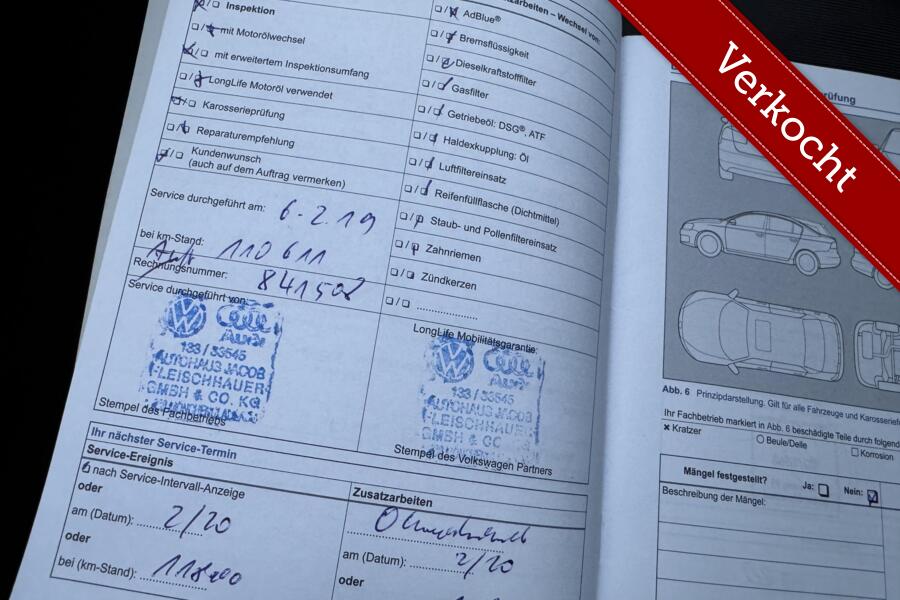 Inspektion
mit Motorölwechsel
mit erweitertem Inspektionsumfang
LongLife Motoröl verwendet
Karosserieprüfung
Reparaturempfehlung
Kundenwunsch
(auch auf dem Auftrag vermerken)
Service durchgeführt am: 6-2.19
bei km-Stand: 110611
Rechnungsnummer: 841508
Service durchgeführt von:
Audi
133 / 33545
AUTOHAUS JACOB
FLEISCHHAUER
GMBH & CO. KG
Stempel des Fachbetriebs
AdBlue®
Bremsflüssigkeit
Dieselkraftstofffilter
Gasfilter
Getriebeöl: DSG®, ATF
Haldexkupplung: Öl
Luftfiltereinsatz
Reifenfüllflasche (Dichtmittel)
Staub- und Pollenfiltereinsatz
Zahnriemen
Zündkerzen
LongLife Mobilitätsgarantie:
Audi
133 / 33545
AUTOHAUS JACOB
FLEISCHHAUER
GMBH & CO
Stempel des Volkswagen Partners
Ihr nächster Service-Termin
Service-Ereignis
nach Service-Intervall-Anzeige
oder
am (Datum): 2/20
oder
bei (km-Stand):
Zusatzarbeiten
am (Datum): 2/20
oder
Verkocht
Abb. 6 Prinzipdarstellung. Gilt für alle Fahrzeuge und
Ihr Fachbetrieb markiert in Abb. 6 beschädigte Teile durch
Kratzer
Beule/Delle
Korrosion
Mängel festgestellt? Ja: Nein:
Beschreibung der Mängel: